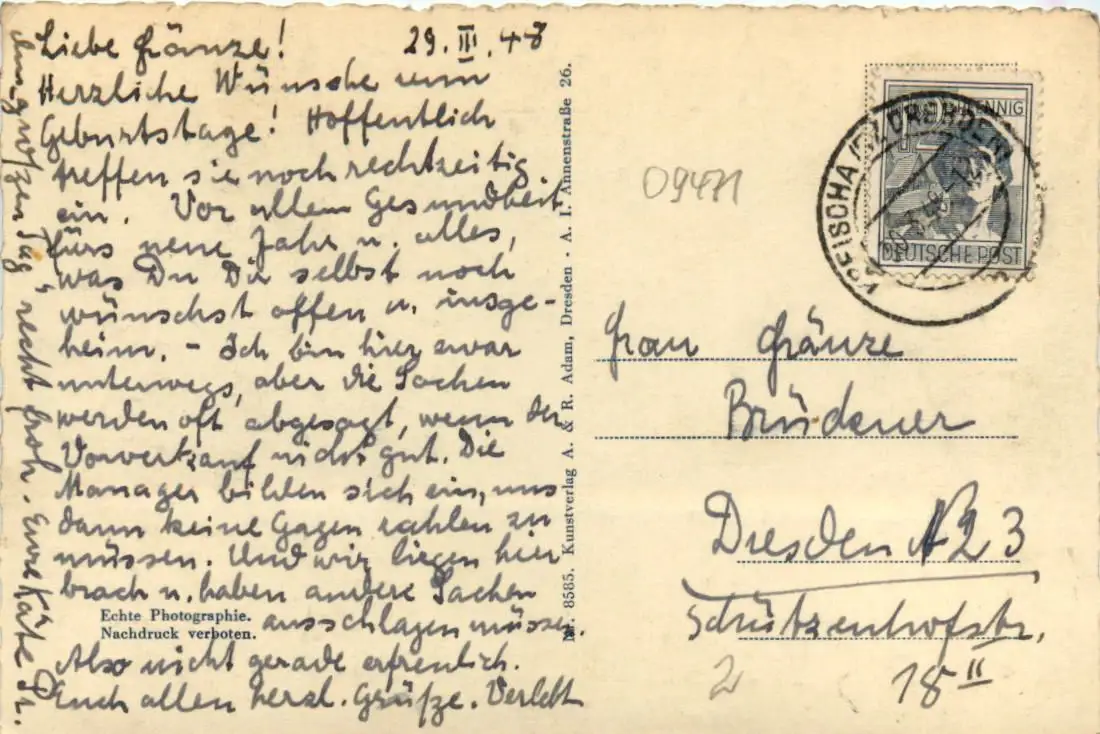 Liebe Gränze! 29. III. 48
Herzliche Wünsche zum
Geburtstage! Hoffentlich
treffen sie noch rechtzeitig
ein. Vor allem Gesundheit
fürs neue Jahr u. alles,
was Du Dir selbst noch
wünschst offen u. insge-
heim. - Ich bin hier zwar
unterwegs, aber die Sachen
werden oft abgesagt, wenn der
Vorverkauf nicht gut. Die
Manager bilden sich ein, uns
dann keine Gagen zahlen zu
müssen. Und wir liegen hier
brach u. haben andere Sachen
ausschlagen müssen.
Also nicht gerade erfreulich.
Euch allen herzl. Grüße. Verlebt
den großen Tag recht froh. Eure Käte Dr.
Echte Photographie.
Nachdruck verboten.
Nr. 8585. Kunstverlag A. & R. Adam, Dresden - A. 1, Annenstraße 26.
09471
PFENNIG
DEUTSCHE POST
KREISCHA (BZ DRESDEN)
Frau Gränze
Brückner
Dresden N 23
Schützenhofstr.
18 II
2